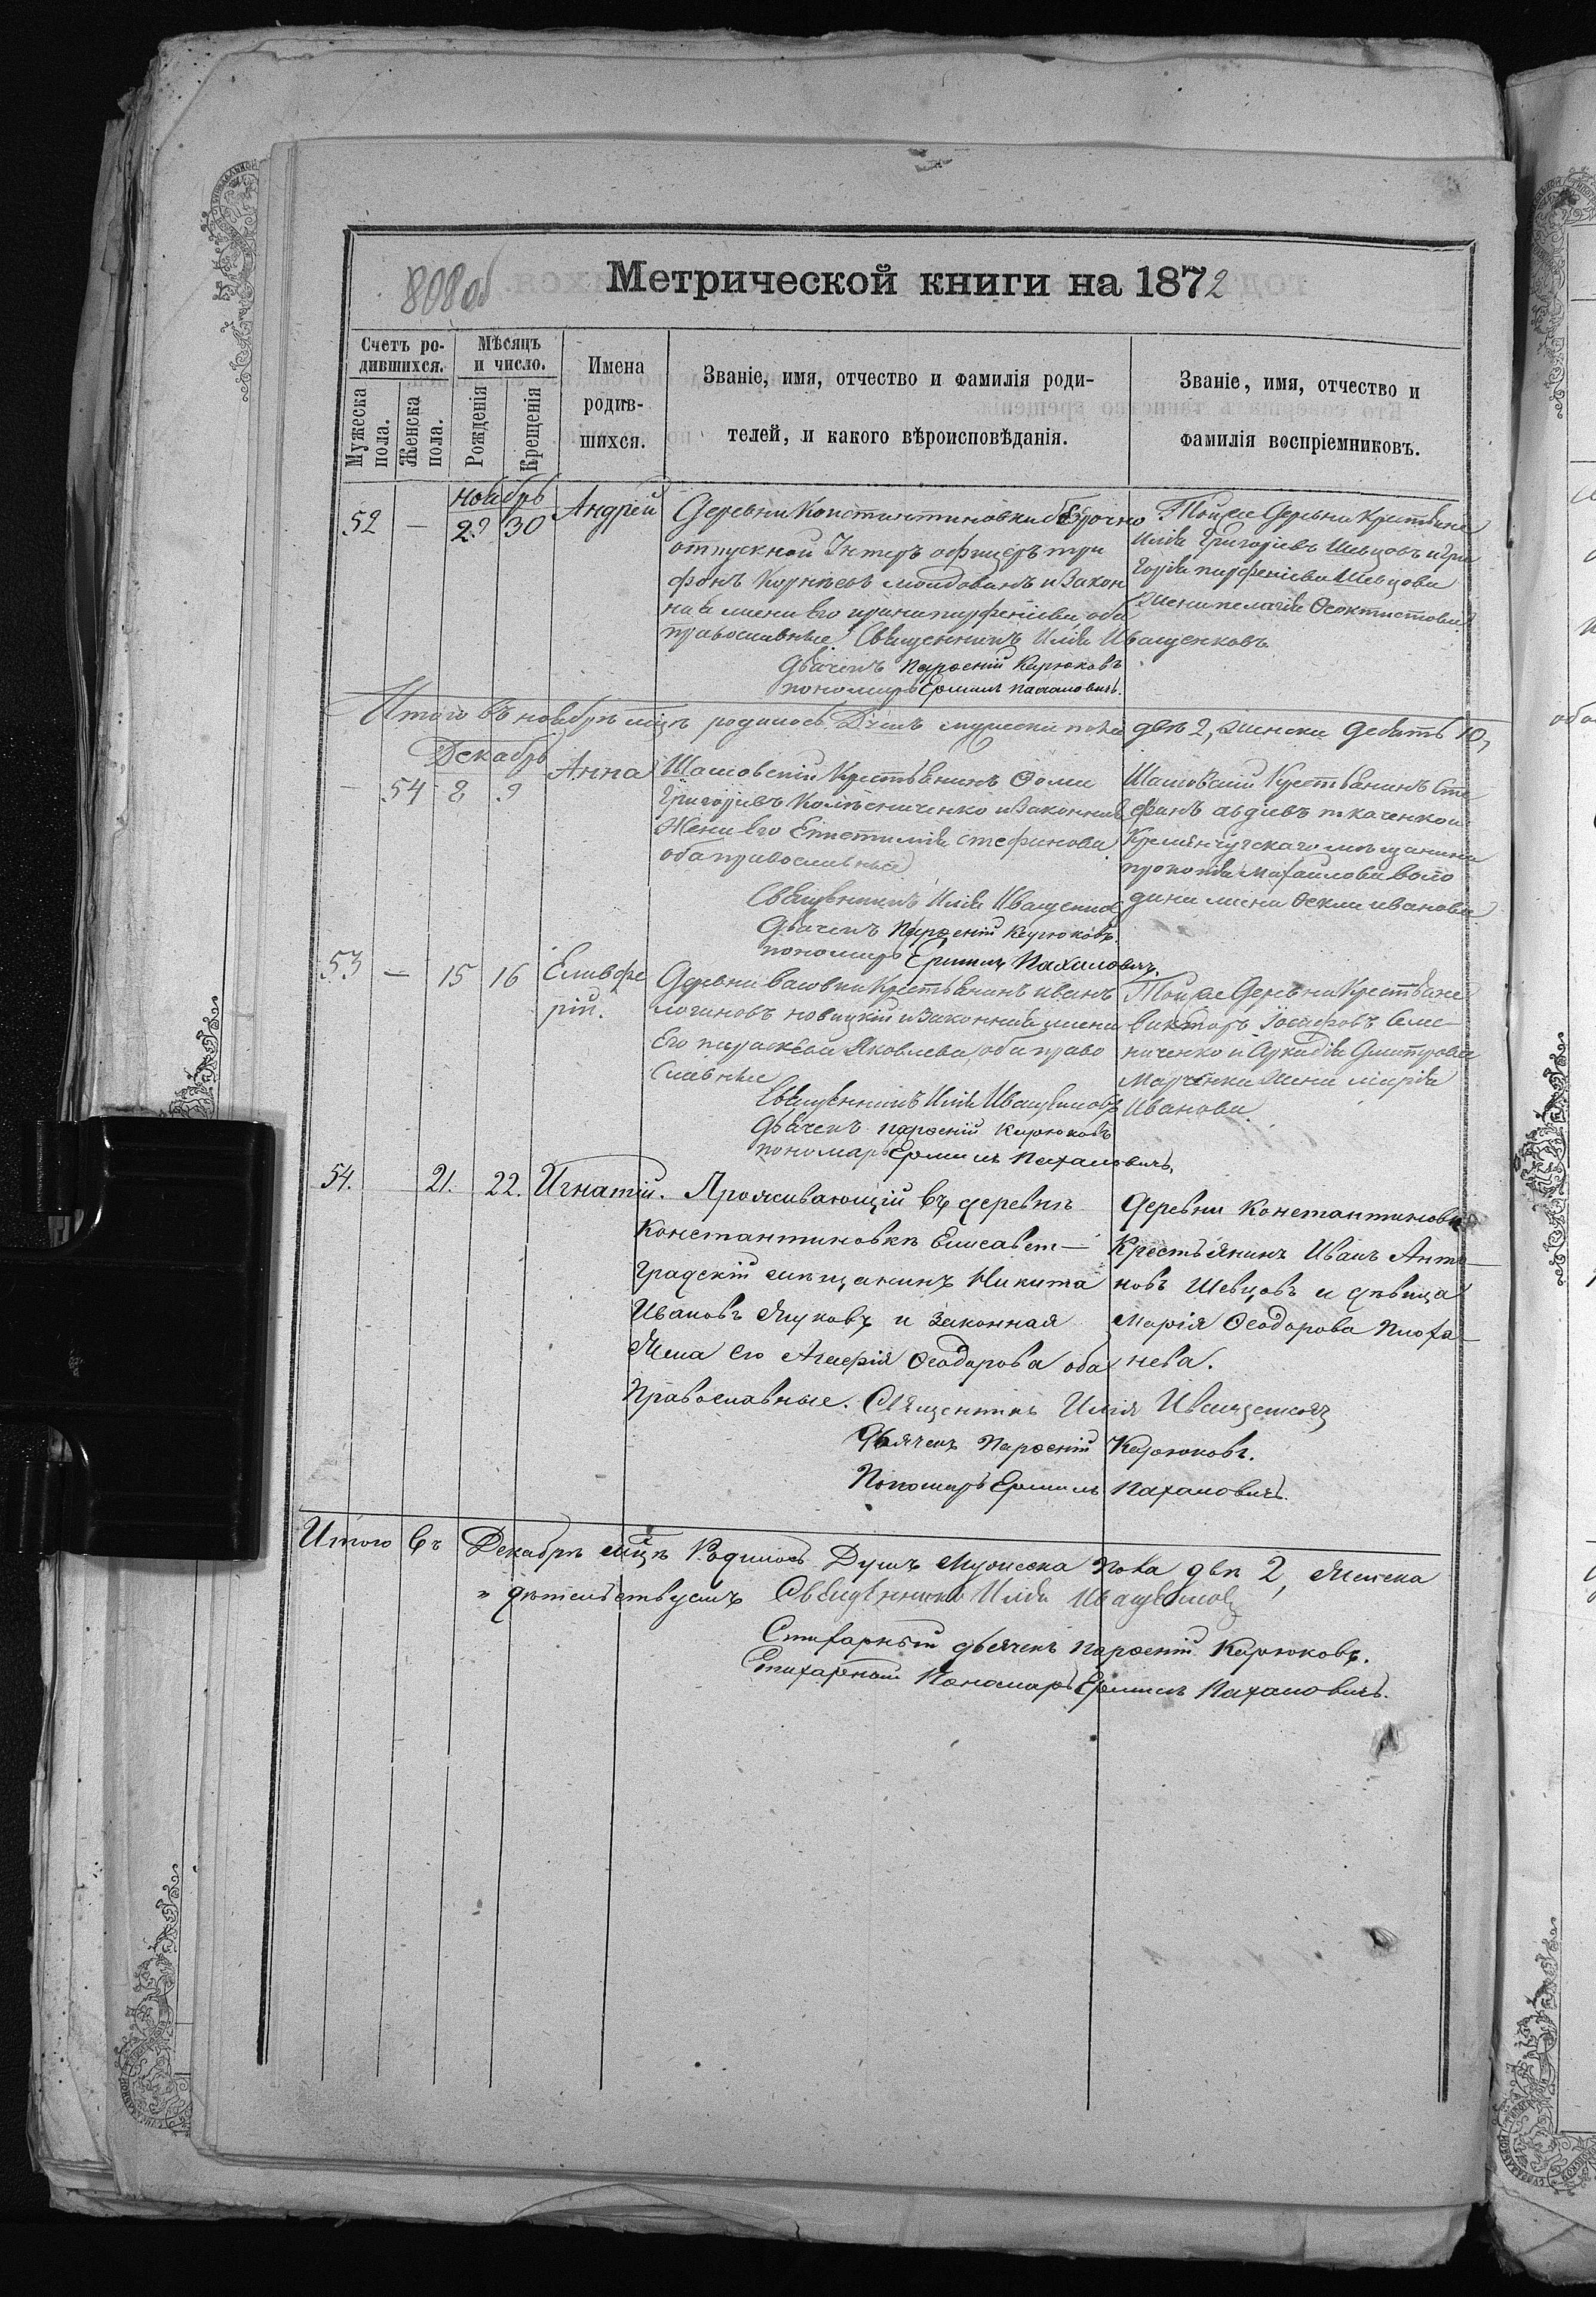 808об
Метрической книги на 1872
Счетъ ро-
дившихся.
Мѣсяцъ
и число.
Мужеска
пола.
Женска
пола.
Рожденія
Крещенія
Имена
родив-
шихся.
Званіе, имя, отчество и фамилія роди-
телей, и какого вѣроисповѣданія.
Званіе, имя, отчество и
фамилія воспріемниковъ.
ноябрь
52 — 29 30 Андрей
Деревни Константиновки бѣзрочно
отпускной Унтеръ офицеръ три
фонъ Корнѣевъ молдованъ и закон
ная жена его ирина парфеніева оба
православные. Священникъ Илія Иващенковъ
Дьячекъ Пароеній Кирюковъ
пономарь Ермилъ Пахаловичъ.
Той же Деревни Крестьяне
Илія Григоріевъ Шевцовъ и Гри
горія парфеніева Шевцова
Жена пелагія Ѳеоктистова.
Итого въ ноябрѣ мцѣ родилось Душъ мужеска пола двѣ 2, женска девять 10,
Декабрь
— 54 8 9 Анна
Шамовскій Крестьянинъ Ѳома
Григоріевъ Колѣсниченко и законная
Жена его Епистимія стефанова
оба православные
Священникъ Илія Иващенков
Дьячекъ Пароеній Кирюковъ.
пономарь Ермилъ Пахаловичъ.
Шамовскій Крестьянинъ Сте
фанъ авдіевъ ткаченко и
Кременчугскаго мѣщанина
прокопія Михайлова Воло
дина жена Ѳекла иванова
53 — 15 16 Еливфе
рій.
Деревни васовки Крестьянинъ иванъ
логиновъ новицкій и законная жена
Его параскева Яковлева, оба право
славные
Священникъ Илія Иващенковъ
Дьячекъ Пароеній Кирюковъ
пономарь Ермилъ Пахаловичъ,
Той же Деревни Крестьяне
викторъ Іосифовъ Семе-
ниченко и Аркадія Дмитріева
Марченка Жена марія
Иванова.
54. 21. 22. Игнатій.
Проживающій въ деревнѣ
Константиновкѣ Елисавет—
градскій мѣщанинъ Никита
Ивановъ Жуковъ и законная
Жена его Агафія Ѳеодорова оба
Православные. Священникъ Илія Иващенковъ
Дьячекъ Пароеній Кирюковъ.
Пономарь Ермилъ Пахаловичъ.
Деревни Константиновки
Крестьянинъ Иванъ Анто—
новъ Шевцовъ и дѣвица
Марія Ѳеодорова
нева.
Итого въ Декабрѣ мцѣ Родилось Душъ Мужеска Пола двѣ 2, Женска
Священникъ Илія Иващенковъ
Стихарный дьячекъ Пароеній Кирюковъ.
Стихарный Пономарь Ермилъ Пахаловичъ.